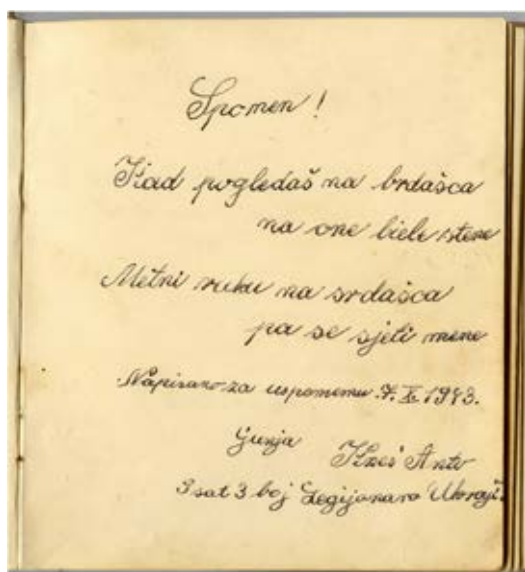 Spomen!
Kad pogledaš na brdašca
na one biele stene
Metni ruku na srdašca
pa se sjeti mene
Napisano za uspomenu 7. X. 1943.
Gunja
Anto
3 sat 3 boj Legijonara